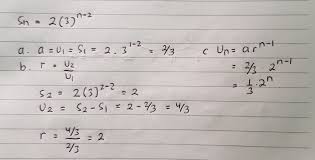 Sn = 2(3)^{n-2}
a. a = U₁ = S₁ = 2 . 3^{1-2} = 2/3
b. r = U₂/U₁
S₂ = 2(3)^{2-2} = 2
U₂ = S₂ - S₁ = 2 - 2/3 = 4/3
r = (4/3)/(2/3) = 2
c Un = ar^{n-1}
= 2/3 . 2^{n-1}
= 1/3 . 2^n